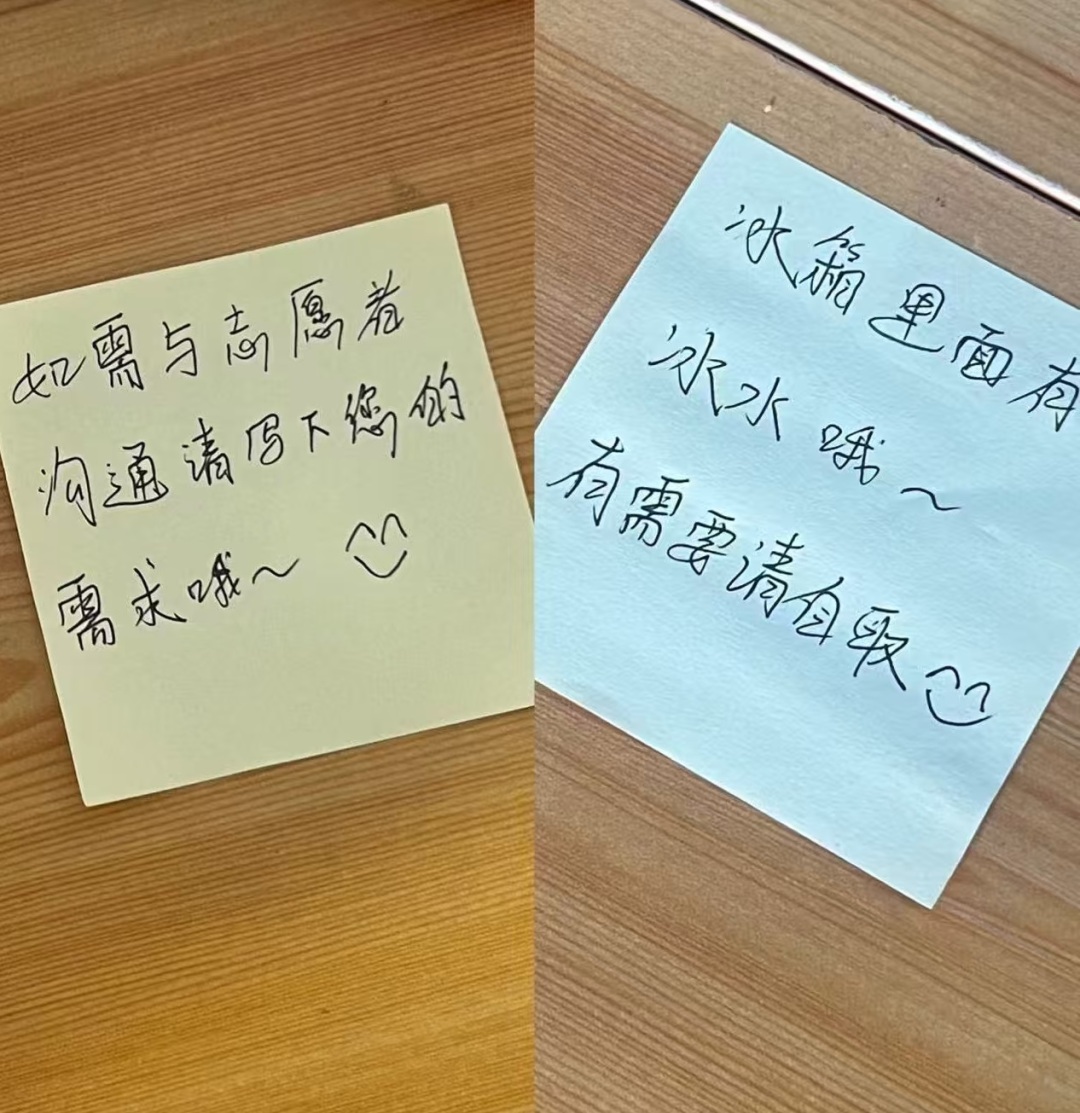 如需与志愿者
沟通请写下您的
需求哦~
冰箱里面有
冰水哦~
有需要请自取